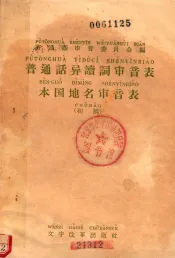 0061125
PǓTŌNGHUÀ SHĚNYĪN WĚIYUÁNHUÌ BIĀN
普通話審音委員会編
PǓTŌNGHUÀ YÌDÚCÍ SHĚNYĪNBIǍO
普通話异讀詞审音表
BĚNGUÓ DÌMÍNG SHĚNYĪNBIǍO
本国地名审音表
CHŪGǍO
(初稿)
WÉNZÌ GǍIGÉ CHŪBǍNSHÈ
文字改革出版社
21312